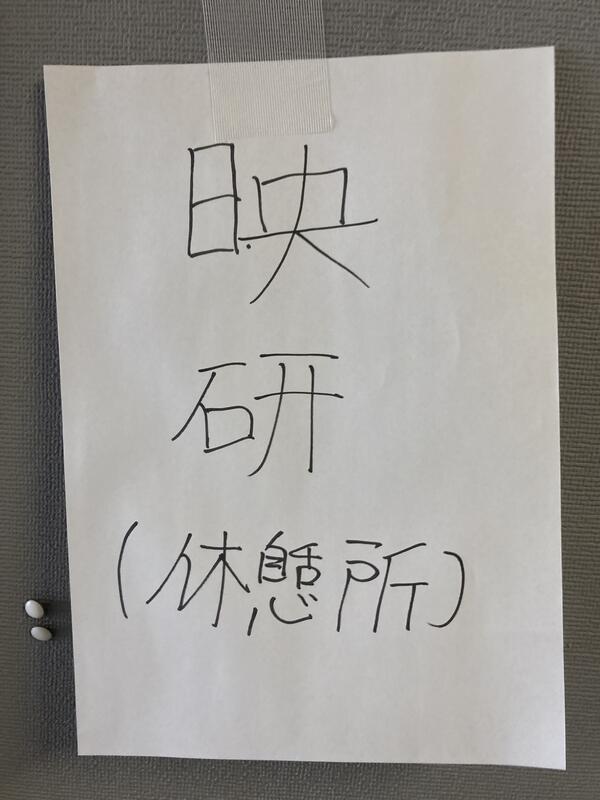 映
研
(休憩所)